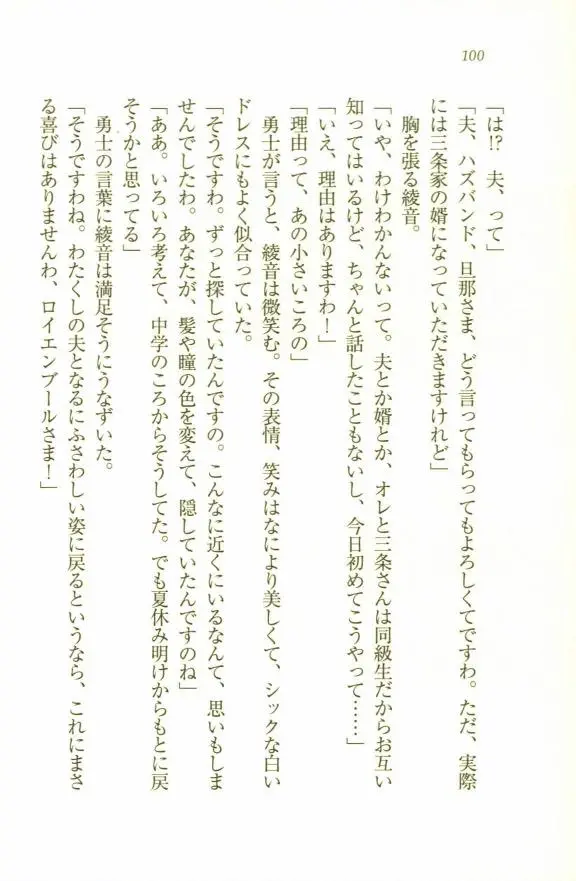 100
「は!?　夫、って」
「夫、ハズバンド、旦那さま、どう言ってもらってもよろしくてですわ。ただ、実際
には三条家の婿になっていただきますけれど」
　胸を張る綾音。
「いや、わけわかんないって。夫とか婿とか、オレと三条さんは同級生だからお互い
知ってはいるけど、ちゃんと話したこともないし、今日初めてこうやって……」
「いえ、理由はありますわ！」
「理由って、あの小さいころの」
　勇士が言うと、綾音は微笑む。その表情、笑みはなにより美しくて、シックな白い
ドレスにもよく似合っていた。
「そうですわ。ずっと探していたんですの。こんなに近くにいるなんて、思いもしま
せんでしたわ。あなたが、髪や瞳の色を変えて、隠していたんですのね」
「ああ。いろいろ考えて、中学のころからそうしてた。でも夏休み明けからもとに戻
そうかと思ってる」
　勇士の言葉に綾音は満足そうにうなずいた。
「そうですわね。わたくしの夫となるにふさわしい姿に戻るというなら、これにまさ
る喜びはありませんわ、ロイエンブールさま！」